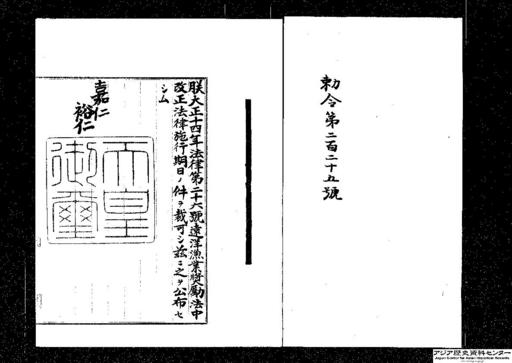 勅令第二百二十五號
朕大正十四年法律第二十六號遠洋漁業奨勵法中
改正法律施行期日ノ件ヲ裁可シ茲ニ之ヲ公布セ
シム
嘉仁
裕仁
天皇
御璽
アジア歴史資料センター
Japan Center for Asian Historical Records